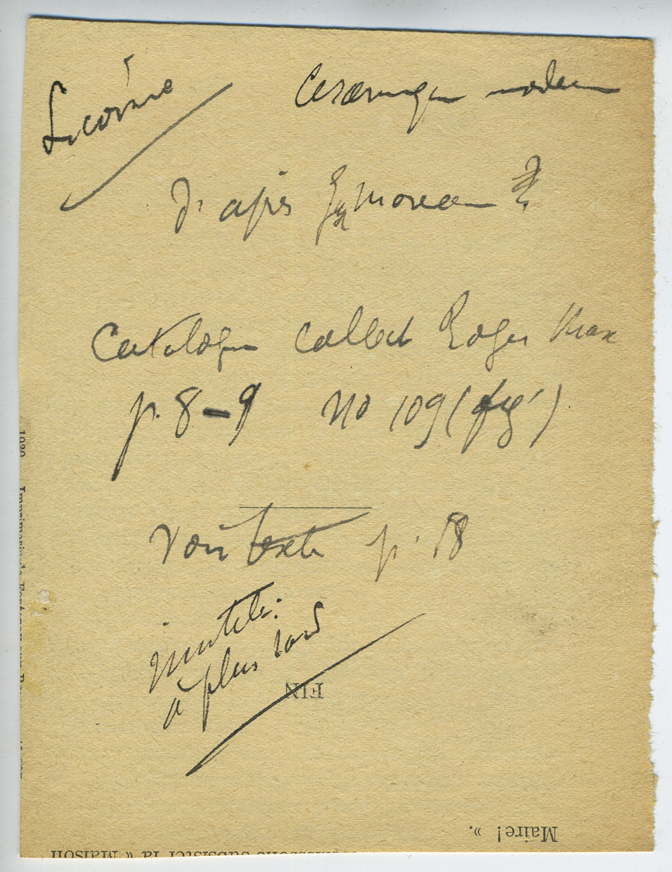 Licorne
Céramique modern
D'après G. Moreau
Catalogue collect Roger Marx
p. 8-9 no 109 (fig)
Voir texte p. 18
inutile.
à plus tard
FIN
Maire ! ».
subsister la « Maison